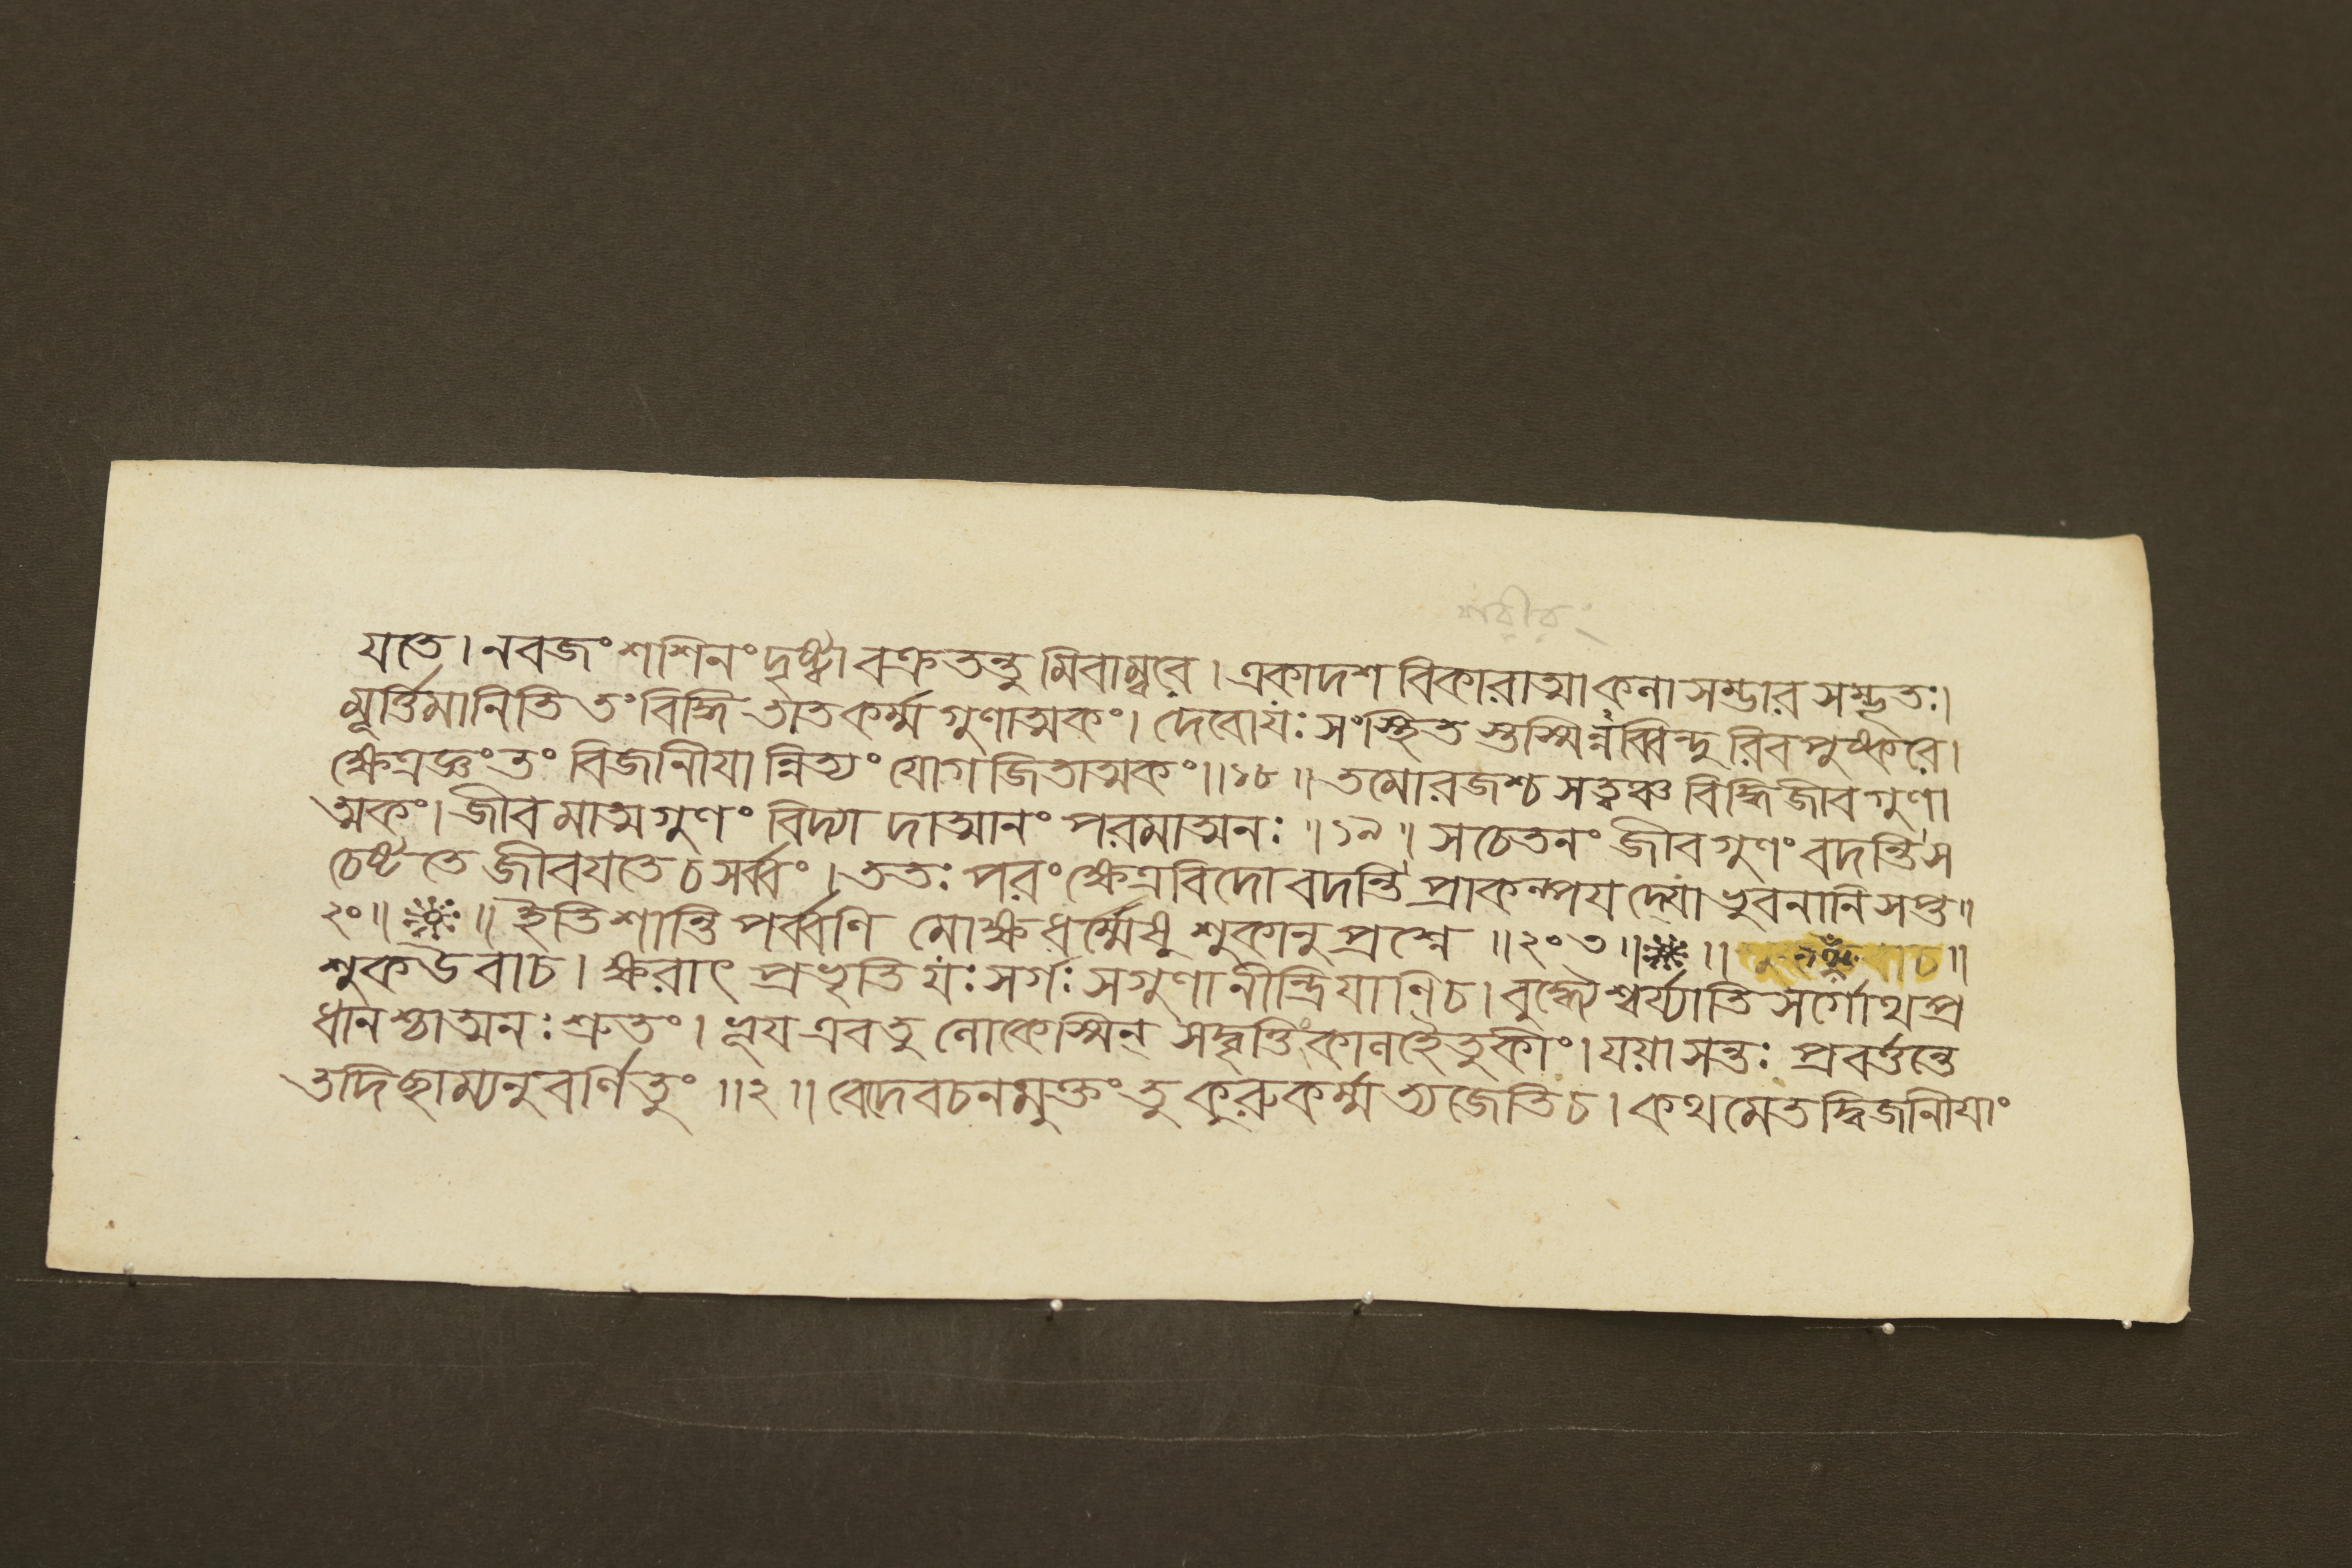 শরীরং
যতে। নবজং শশিনং দৃষ্ট্বা বক্রতন্তুমিবাম্বরে। একাদশবিকারাত্মা কলাসম্ভারসম্ভৃতঃ।
মূর্ত্তিমানিতি তং বিদ্ধি তাত কর্ম্মগুণাত্মকং। দেবো যঃ সংস্থিতস্তস্মিন্নব্বিন্দুরিব পুষ্করে।
ক্ষেত্রজ্ঞং তং বিজানীয়ান্নিত্যং যোগজিতাত্মকং॥১৮॥ তমো রজশ্চ সত্ত্বঞ্চ বিদ্ধি জীবগুণা
ত্মকং। জীবমাত্মগুণং বিদ্যাদাত্মানং পরমাত্মনঃ॥১৯॥ সচেতনং জীবগুণং বদন্তি স
চেষ্টতে জীবয়তে চ সর্ব্বং। ততঃ পরং ক্ষেত্রবিদো বদন্তি প্রাকল্পয়দ্যো ভুবনানি সপ্ত॥
২০॥ ॥ ইতি শান্তিপর্ব্বণি মোক্ষধর্ম্মেষু শুকানুপ্রশ্নে॥২০৩॥ ॥ চ॥
শুক উবাচ। ক্ষরাৎ প্রভৃতি যঃ সর্গঃ সগুণানীন্দ্রিয়াণি চ। বুদ্ধ্যৈশ্বর্য্যাতিসর্গোথ প্র
ধানশ্চাত্মনঃ শ্রুতং। ভূয় এব তু লোকেস্মিন্ সদ্বৃত্তিং কালহৈতুকীং। যয়া সন্তঃ প্রবর্ত্তন্তে
তদিছাম্যনুবর্ণিতুং॥২॥ বেদবচনমুক্তং তু কুরু কর্ম্ম ত্যজেতি চ। কথমেতদ্বিজানীয়াং